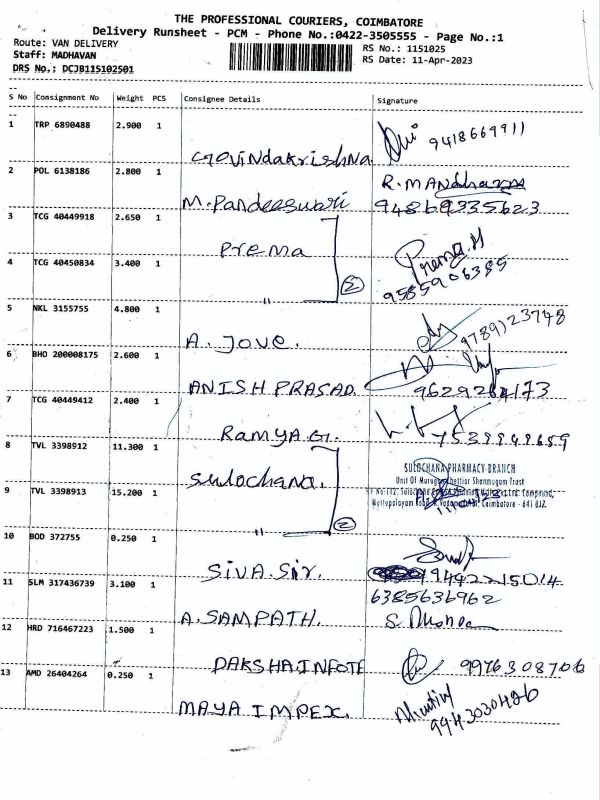 THE PROFESSIONAL COURIERS, COIMBATORE
Delivery Runsheet - PCM - Phone No.:0422-3505555 - Page No.:1
Route: VAN DELIVERY
RS No.: 1151025
Staff: MADHAVAN
RS Date: 11-Apr-2023
DRS No.: DCJB115102501
S No Consignment No Weight PCS Consignee Details Signature
1 TRP 6890488 2.900 1
Govindakrishna 9418669911
2 POL 6138186 2.800 1
M. Pandeeswari R. MANdharan
94869335623
3 TCG 40449918 2.650 1
Prema
4 TCG 40450834 3.400 1 Prema.H
" 2 9585906385
5 NKL 3155755 4.800 1
A. Jove. 9789123748
6 BHO 200008175 2.600 1
ANISH PRASAD. 9629284173
7 TCG 40449412 2.400 1
RAMYA.G. 7539949659
8 TVL 3398912 11.300 1
Sulochana. SULOCHANA PHARMACY-BRANCH
Unit Of Chettiar Shenmugam Trust
9 TVL 3398913 15.200 1
Coimbatore - 641
" 2
10 BOD 372755 0.250 1
SIVA. Sir. 9492215014
11 SLM 317436739 3.100 1
6385636962
A. SAMPATH.
12 HRD 716467223 1.500 1
DAKSHA INFOTE 9976308706
13 AMD 26404264 0.250 1
MAYA IMPEX. 9943030426